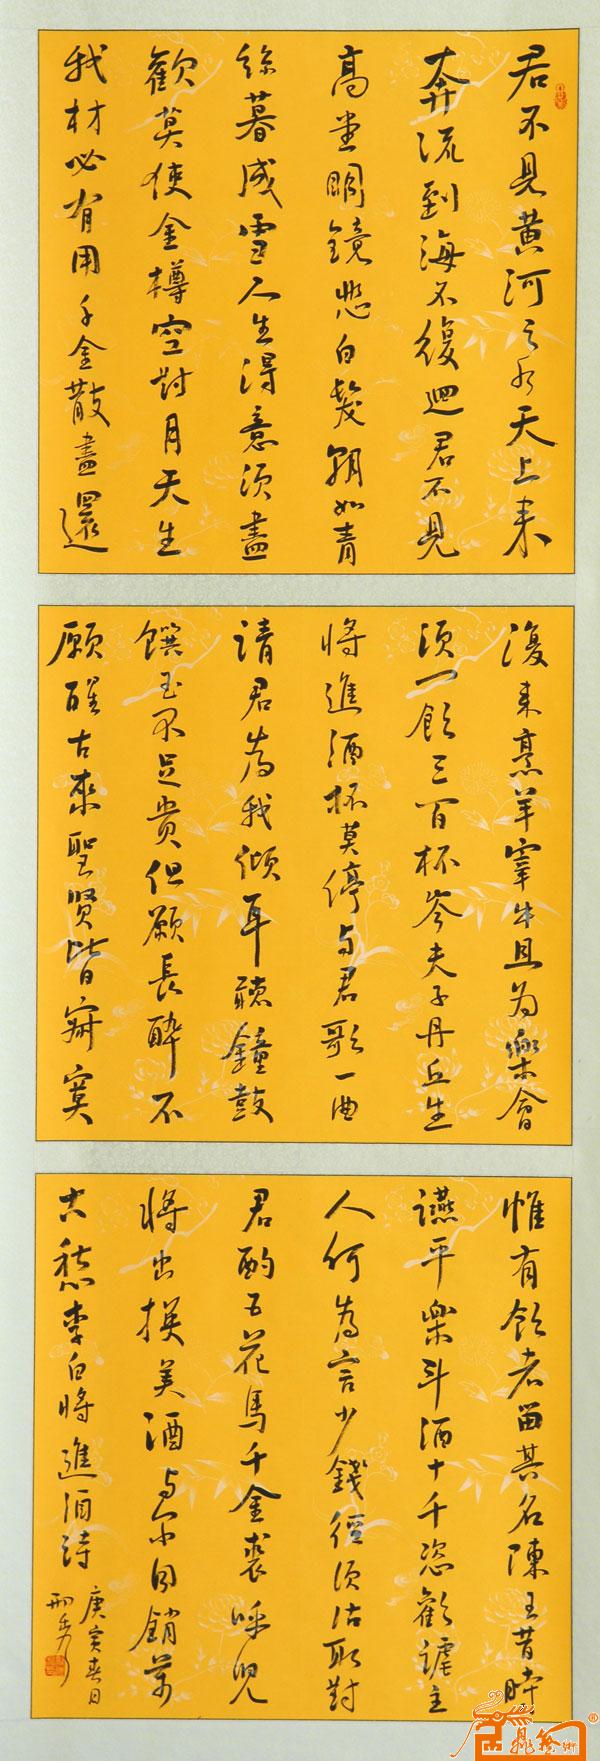 君不見黃河之水天上来
奔流到海不復迴君不見
高堂明鏡悲白髮朝如青
絲暮成雪人生得意須盡
歡莫使金樽空對月天生
我材必有用千金散盡還
復来烹羊宰牛且為樂會
須一飲三百杯岑夫子丹丘生
將進酒杯莫停与君歌一曲
請君為我傾耳聽鐘鼓
饌玉不足贵但願長醉不
願醒古来聖贤皆寂寞
惟有飲者留其名陳王昔時
讌平樂斗酒十千恣歡謔主
人何為言少錢徑須沽取對
君酌五花馬千金裘呼兒
將出換美酒与尔同銷萬
古愁李白將進酒詩
庚寅春日